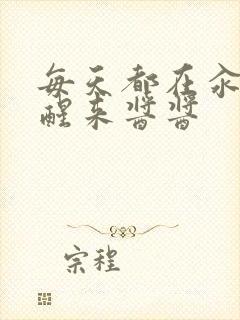 每天都在汆
醒来酱酱
宗程